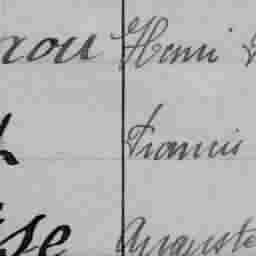 nou Henri
Francis
se Auguste